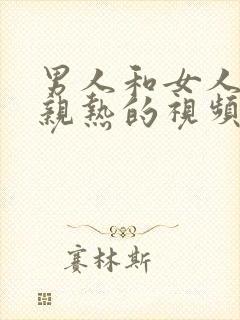 男人和女人
親熱的視頻
賽林斯